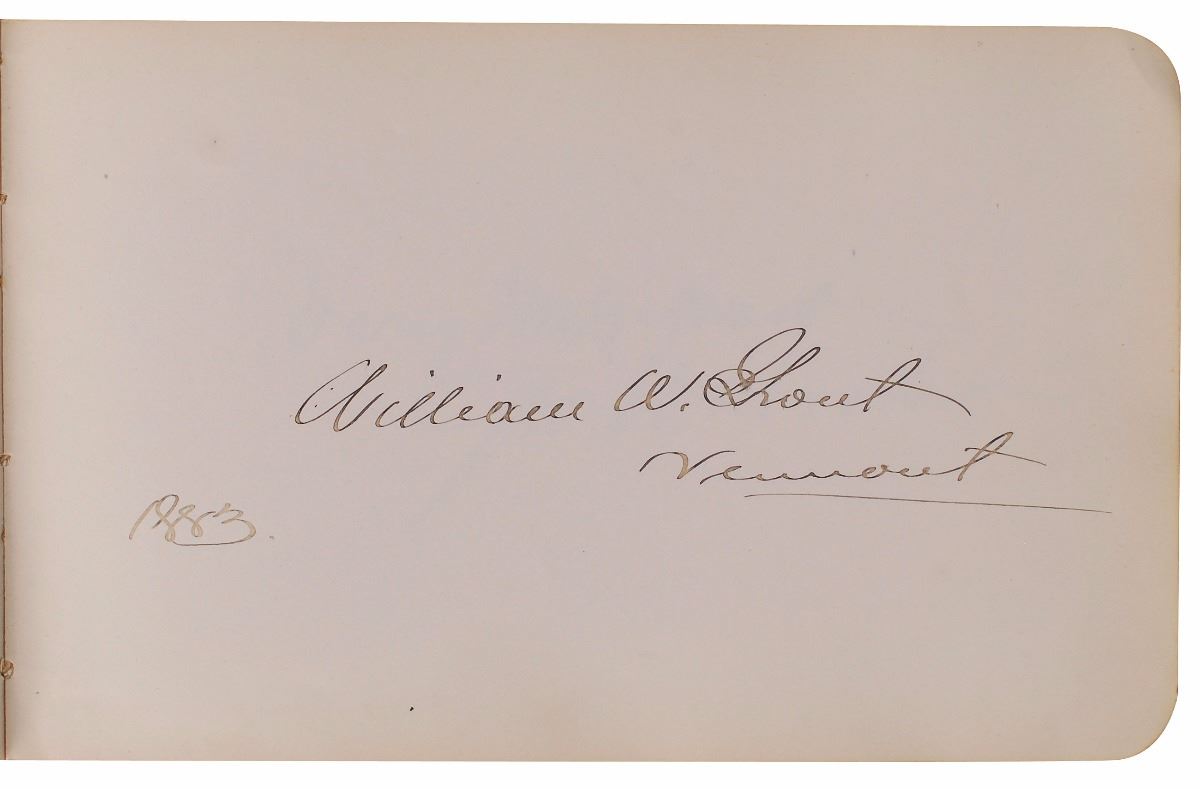 William W. Grout
Vermont
1883.